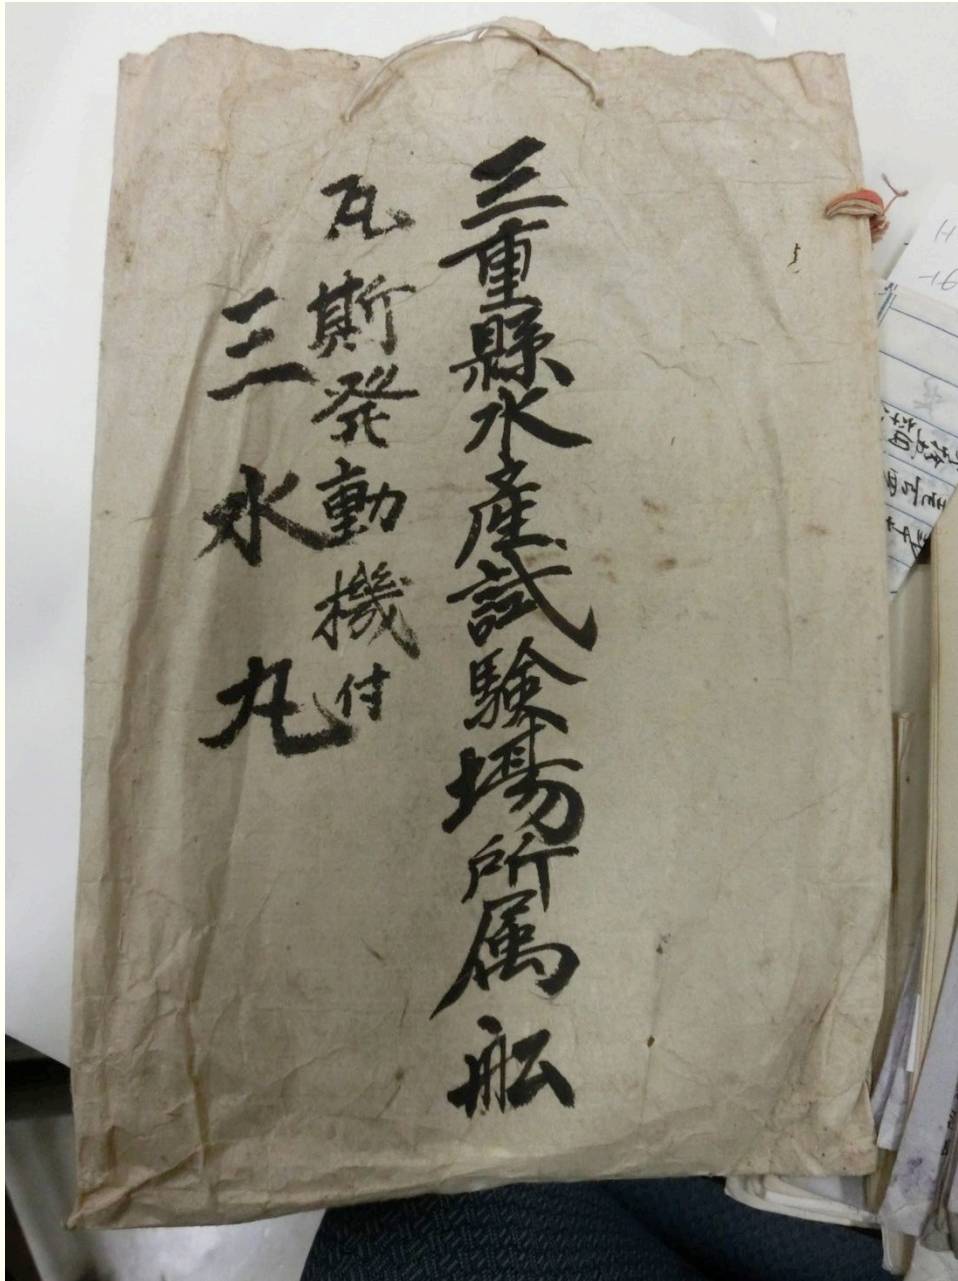 三重縣水産試験場所属舩
瓦斯発動機付
三水丸